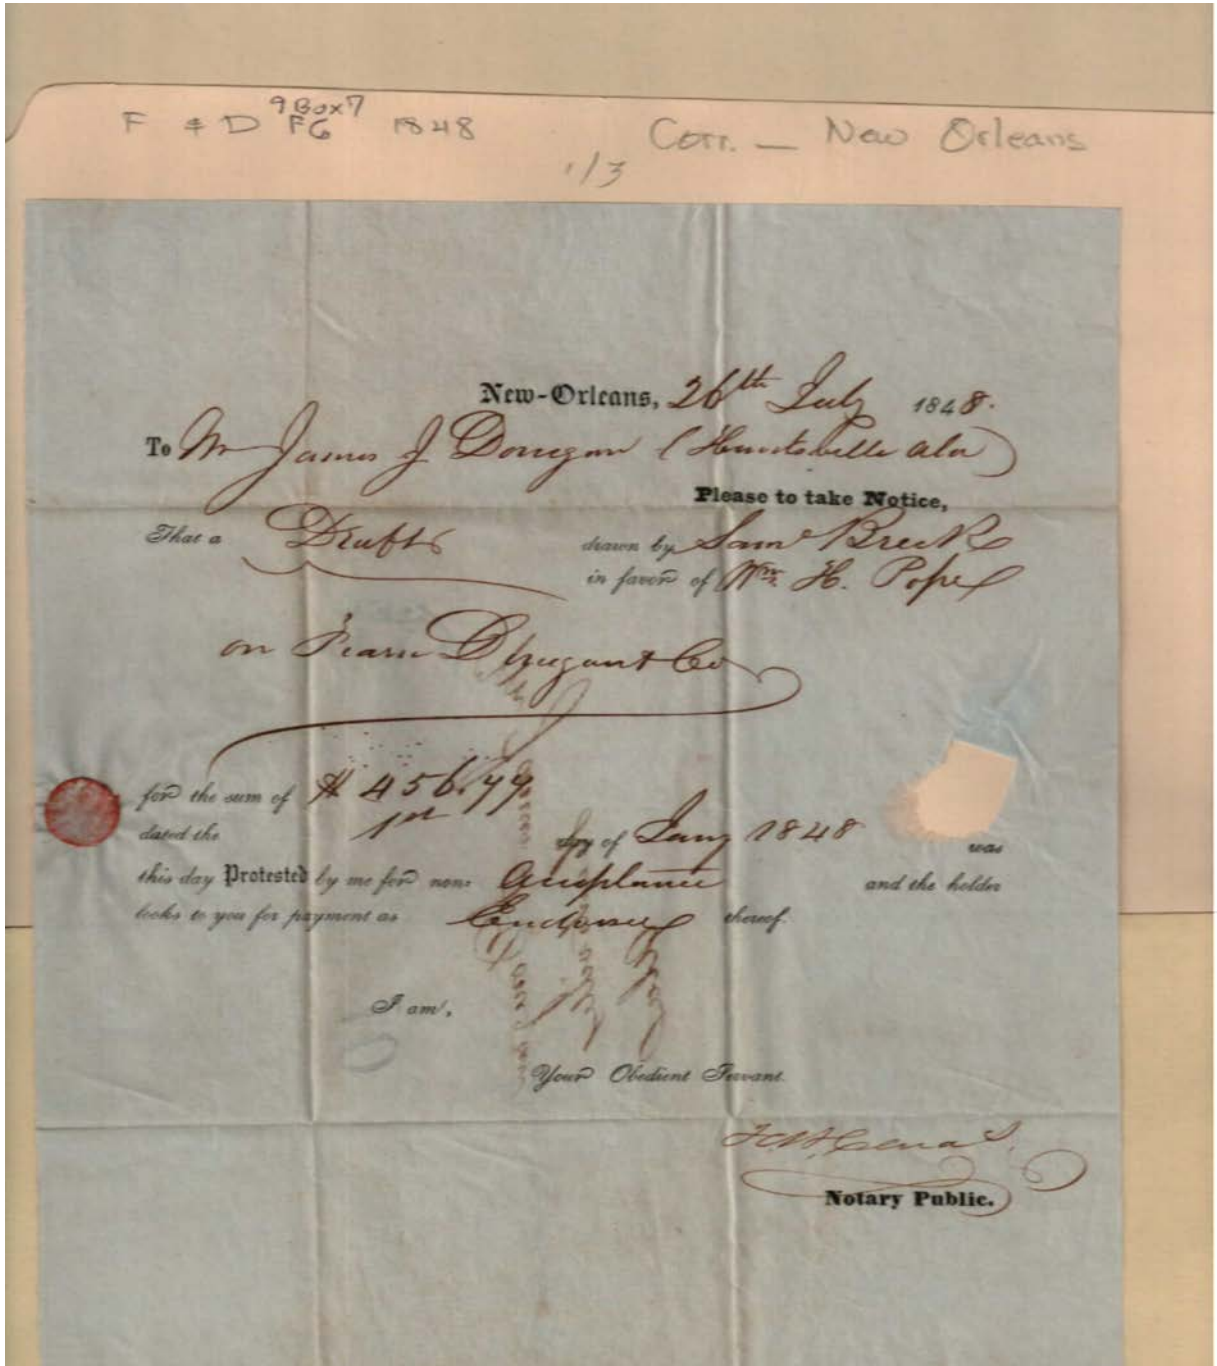 F & D 9 Box 7 F6 1848 Corr. — New Orleans
1/3
New-Orleans, 26th July 1848.
To Mr James J Donegan (Huntsville Ala)
Please to take Notice,
That a Draft drawn by Saml Breck
in favor of Wm. H. Pope
on Fearn Donegan & Co
for the sum of $ 456.79
dated the 1st day of Jany 1848 was
this day Protested by me for non- Acceptance and the holder
looks to you for payment as Endorser thereof.
I am,
Your Obedient Servant.
Notary Public.